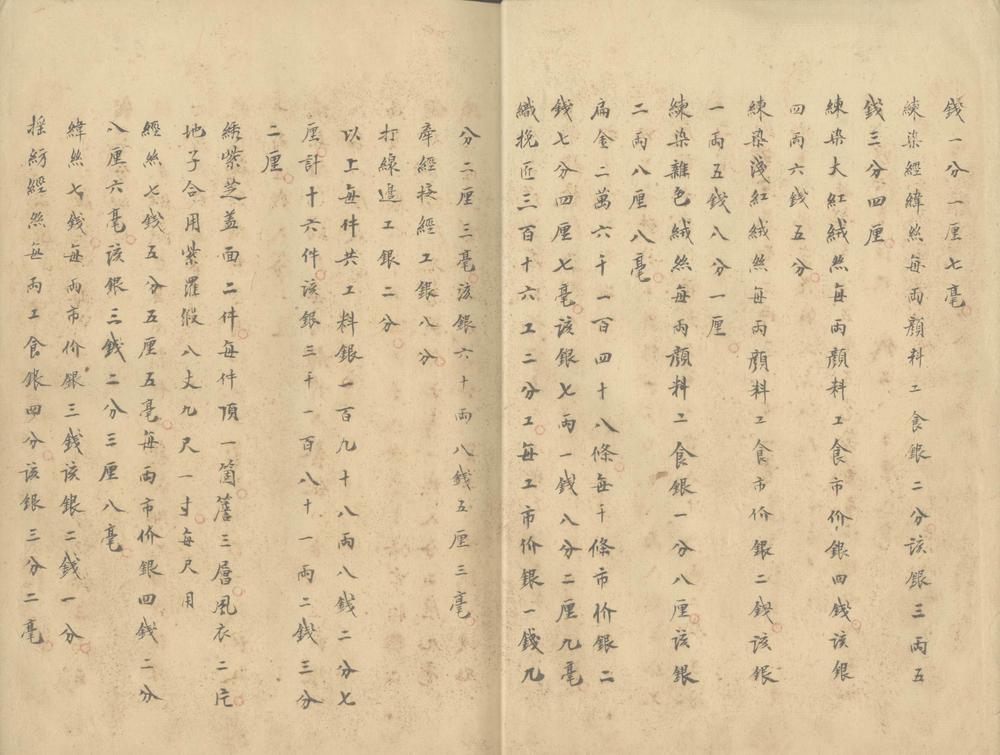 錢一分一厘七毫
練染經緯絲每兩顏料工食銀二分該銀三兩五
錢三分四厘
練染大紅絨絲每兩顏料工食市价銀四錢該銀
四兩六錢五分
練染淺紅絨絲每兩顏料工食市价銀二錢該銀
一兩五錢八分一厘
練染雜色絨絲每兩顏料工食銀一分八厘該銀
二兩八厘八毫
扁金二萬六千一百四十八條每千條市价銀二
錢七分四厘七毫該銀七兩一錢八分二厘九毫
織挽匠三百十六工二分工每工市价銀一錢九
分二厘三毫該銀六十兩八錢五厘三毫
牽經接經工銀八分
打線邊工銀二分
以上每件共工料銀一百九十八兩八錢二分七
厘計十六件該銀三千一百八十一兩二錢三分
二厘
綉紫芝蓋面二件每件頂一箇簷三層風衣二片
地子合用紫羅緞八丈九尺一寸每尺用
經絲七錢五分五厘五毫每兩市价銀四錢二分
八厘六毫該銀三錢二分三厘八毫
緯絲七錢每兩市价銀三錢該銀二錢一分
搖紡經絲每兩工食銀四分該銀三分二毫